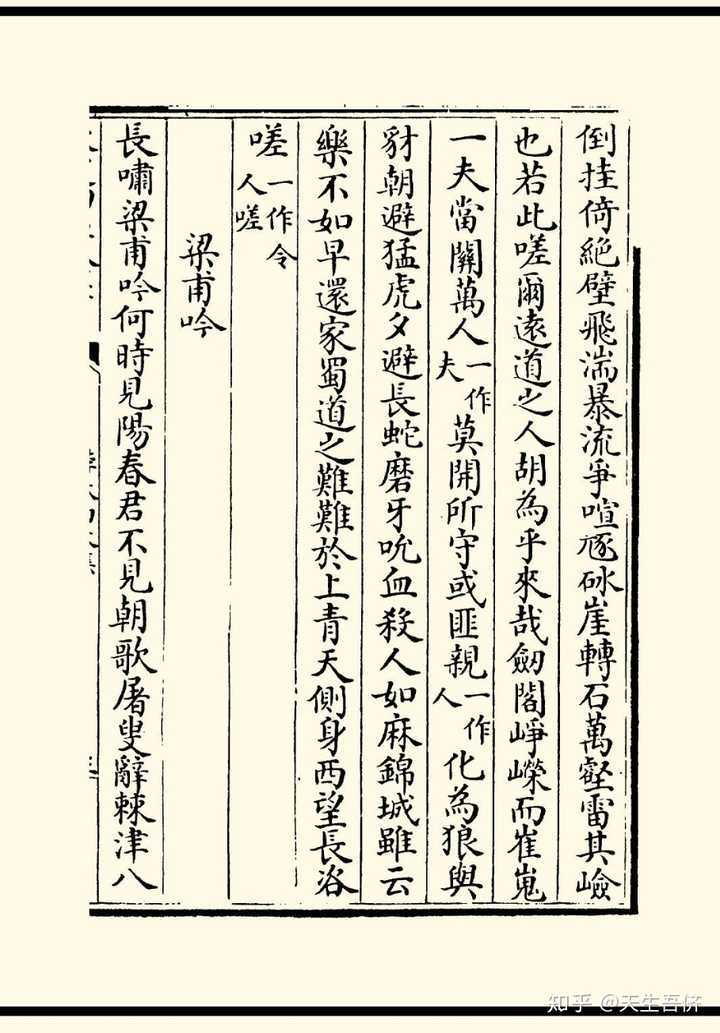 倒挂倚絕壁飛湍暴流爭喧豗砯崖轉石萬壑雷其嶮
也若此嗟爾遠道之人胡為乎來哉劒閣崢嶸而崔嵬
一夫當關萬人一作夫莫開所守或匪親一作人化為狼與
豺朝避猛虎夕避長蛇磨牙吮血殺人如麻錦城雖云
樂不如早還家蜀道之難難於上青天側身西望長咨
嗟一作令人嗟
梁甫吟
長嘯梁甫吟何時見陽春君不見朝歌屠叟辭棘津八
知乎 @天生吾侪